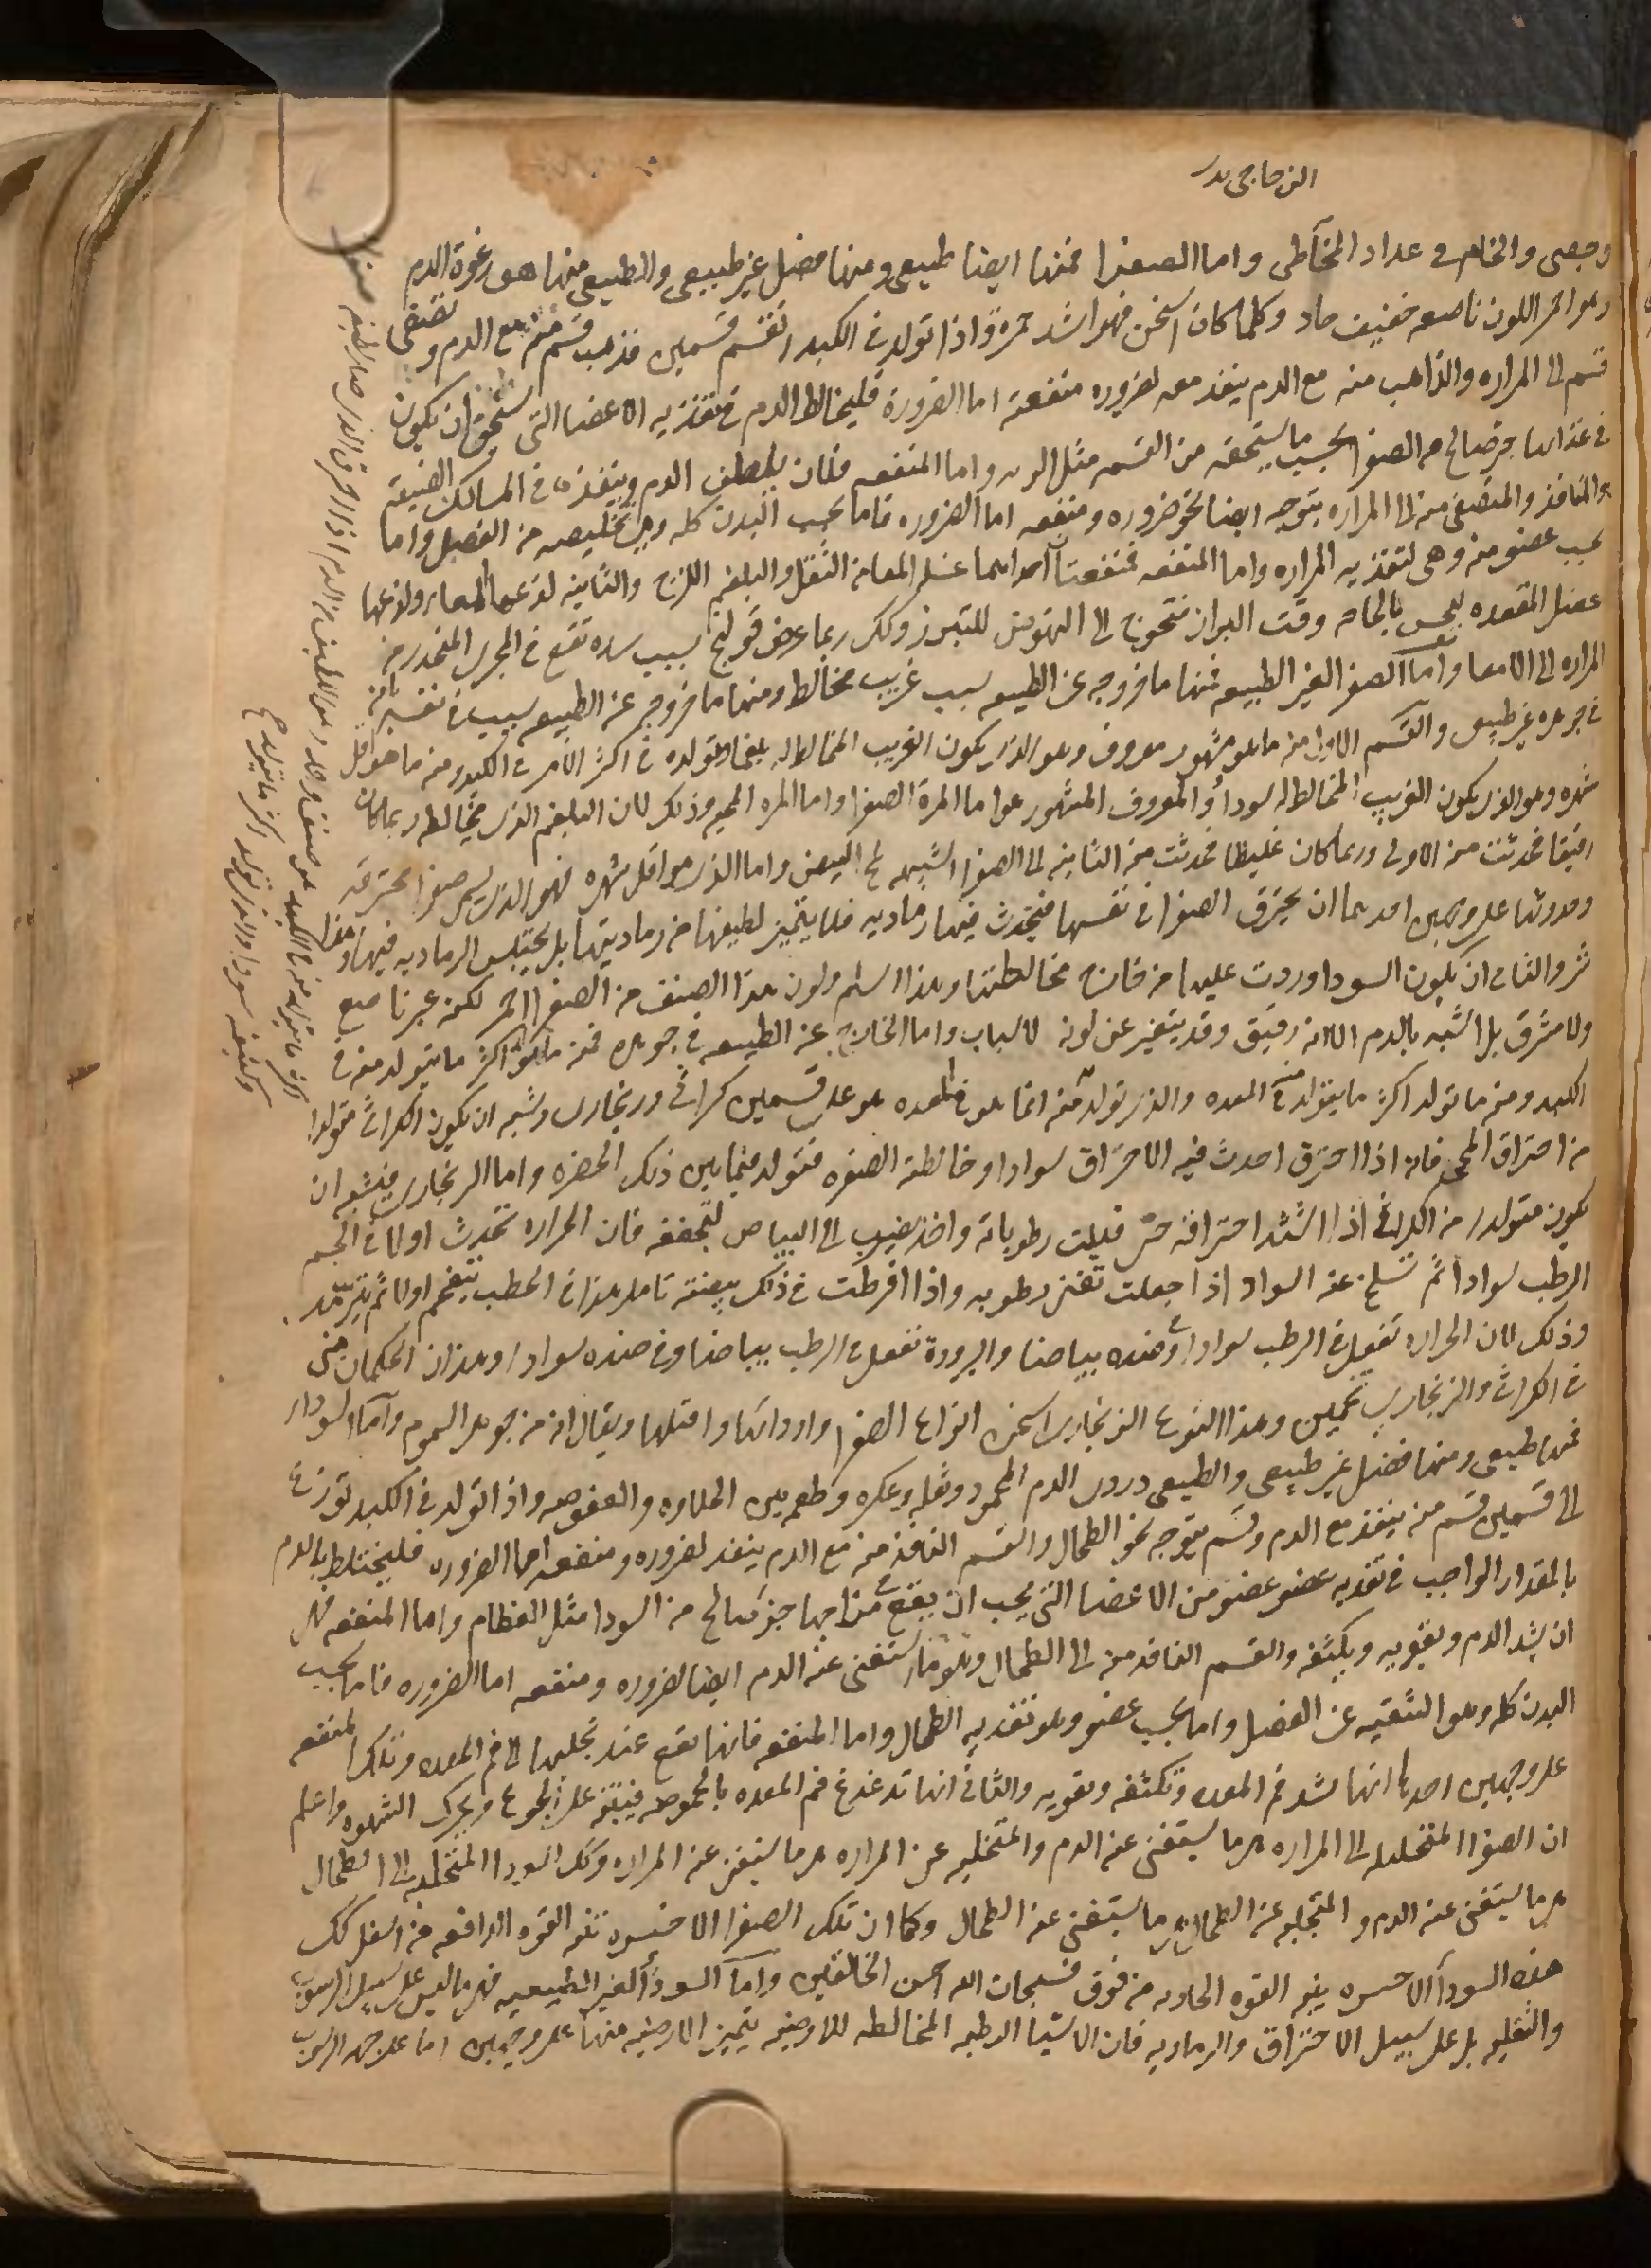 وجصى والخام فى عداد المخاطى واما الصفرا فمنها ايضا طبيعى ومنها فضل غير طبيعى والطبيعى منها هو رغوة الدم
وهو احمر اللون ناصعه خفيف حاد وكلما كان اسخن فهو اشد حمرة واذا تولد فى الكبد انقسم قسمين فذهب قسم منه مع الدم وتصفى
قسم الى المراره والذاهب منه مع الدم ينفذ معه لضروره ومنفعة اما الضرورة فليخالط الدم فى تغذيه الاعضا التى تستحق ان يكون
فى غذائها جز صالح من الصفرا بحسب ما يستحقه من القسمه مثل الريه واما المنفعه فلان يلطف الدم وينفذه فى المسالك الضيقة
والمنافذ والمتصفى منه الى المراره يتوجه ايضا نحو ضروره ومنفعه اما الضروره فاما بحسب البدن كله وهى تخليصه من الفضل واما
بحسب عضو منه وهى لتغذيه المراره واما المنفعه فمنفعتان احداهما غسله المعا من الثفل والبلغم اللزج والثانية لذعها المعا ولذعها
عضل المقعده ليحس بالحاجه وقت البراز فتحوج الى النهوض للتبرز ولذلك ربما عرض قولنج بسبب سده تقع فى المجرى المنحدر من
المراره الى الامعا واما الصفرا الغير الطبيعه فمنها ما خروجه عن الطبيعه بسبب غريب مخالط ومنها ما خروجه عن الطبيعه بسبب فى نفسه بانه
فى جوهره غير طبيعى والقسم الاول منه ما هو مشهور معروف وهو الذى يكون الغريب المخالط له بلغما وتولده فى اكثر الامر فى الكبد ومنه ما هو اقل
شهره وهو الذى يكون الغريب المخالط له سودا والمعروف المشهور هو اما المرة الصفرا واما المره المحيه وذلك لان البلغم الذى يخالطه ربما كان
رقيقا فحدثت منه الاولى وربما كان غليظا فحدثت منه الثانيه اى الصفرا الشبيهه بمح البيض واما الذى هو اقل شهره فهو الذى يسمى صفرا محترقه
وحدوثها على وجهين احدهما ان يحترق الصفرا فى نفسها فيحدث فيها رماديه فلا يتميز لطيفها من رماديتها بل يحتبس الرماديه فيها وهذا
شر والثانى ان يكون السودا وردت عليها من خارج مخالطتها وهذا اسلم ولون هذا الصنف من الصفرا احمر لكنه غير ناصع
ولا مشرق بل اشبه بالدم الا انه رقيق وقد يتغير عن لونه لاسباب واما الخارج عن الطبيعه فى جوهره فمنه ما تولد اكثر ما يتولد منه فى
الكبد ومنه ما تولد اكثر ما يتولد منه فى المعده والذى تولد منه انما هو فى المعده هو على قسمين كراثى وزنجارى ويشبه ان يكون الكراثى متولدا
من احتراق المحى فانه اذا احترق احدث فيه الاحتراق سوادا وخالطته الصفره فتولد فيما بين ذلك الخضره واما الزنجارى فيشبه ان
يكون متولدا من الكراثى اذا اشتد احتراقه حتى فنيت رطوباته واخذ يضرب الى البياض لتجففه فان الحراره تحدث اولا فى الجسم
الرطب سوادا ثم تسلخ عنه السواد اذا جعلت تفنى رطوبه واذا افرطت فى ذلك بيضته تامل هذا فى الحطب يتفحم اولا ثم يترمد
وذلك لان الحراره تفعل فى الرطب سوادا وفى ضده بياضا والبرودة تفعل فى الرطب بياضا وفى ضده سوادا وهذان الحكمان منى
فى الكراثى والزنجارى تخمين وهذا النوع الزنجارى اسخن انواع الصفرا واردائها واقتلها ويقال انه من جوهر السموم واما السودا
فمنها طبيعى ومنها فضل غير طبيعى والطبيعى دردى الدم المحمود وثفله وعكره وطعمه بين الحلاوه والعفوصه واذا تولد فى الكبد توزع
الى قسمين قسم منه ينفذ مع الدم وقسم يتوجه نحو الطحال والقسم النافذ منه مع الدم ينفذ لضروره ومنفعه اما الضروره فليختلط بالدم
بالمقدار الواجب فى تغذيه عضو عضو من الاعضا التى يجب ان يقع فى مزاجها جز صالح من السودا مثل العظام واما المنفعه فهى
ان يشد الدم ويقويه ويكثفه والقسم النافذ منه الى الطحال وهو ما استغنى عنه الدم ايضا لضروره ومنفعه اما الضروره فاما بحسب
البدن كله وهو التنقيه عن الفضل واما بحسب عضو وهو تغذيه الطحال واما المنفعه فانها تقع عند تحلبها الى فم المعده وتلك المنفعه
على وجهين احدها انها تشد فم المعده وتكثفه وتقويه والثانى انها تدغدغ فم المعده بالحموضه فينبه على الجوع ويحرك الشهوه واعلم
ان الصفرا المتحلبه الى المراره هى ما يستغنى عنه الدم والمتحلبه عن المراره هى ما يستغنى عنه المراره وكذلك السودا المتحلبه الى الطحال
هى ما يستغنى عنه الدم والمتحلبه عن الطحال هى ما يستغنى عنه الطحال وكما ان تلك الصفرا الاخيره تنبه القوه الدافعه من اسفل كذلك
هذه السودا الاخيره ينبه القوه الجاذبه من فوق فسبحان الله احسن الخالقين واما السودا الغير الطبيعيه فهى ما ليس على سبيل الرسوب
والثفليه بل على سبيل الاحتراق والرماديه فان الاشيا الرطبه المخالطه للارضيه يتميز الارضيه منها على وجهين اما على جهه الرسوب